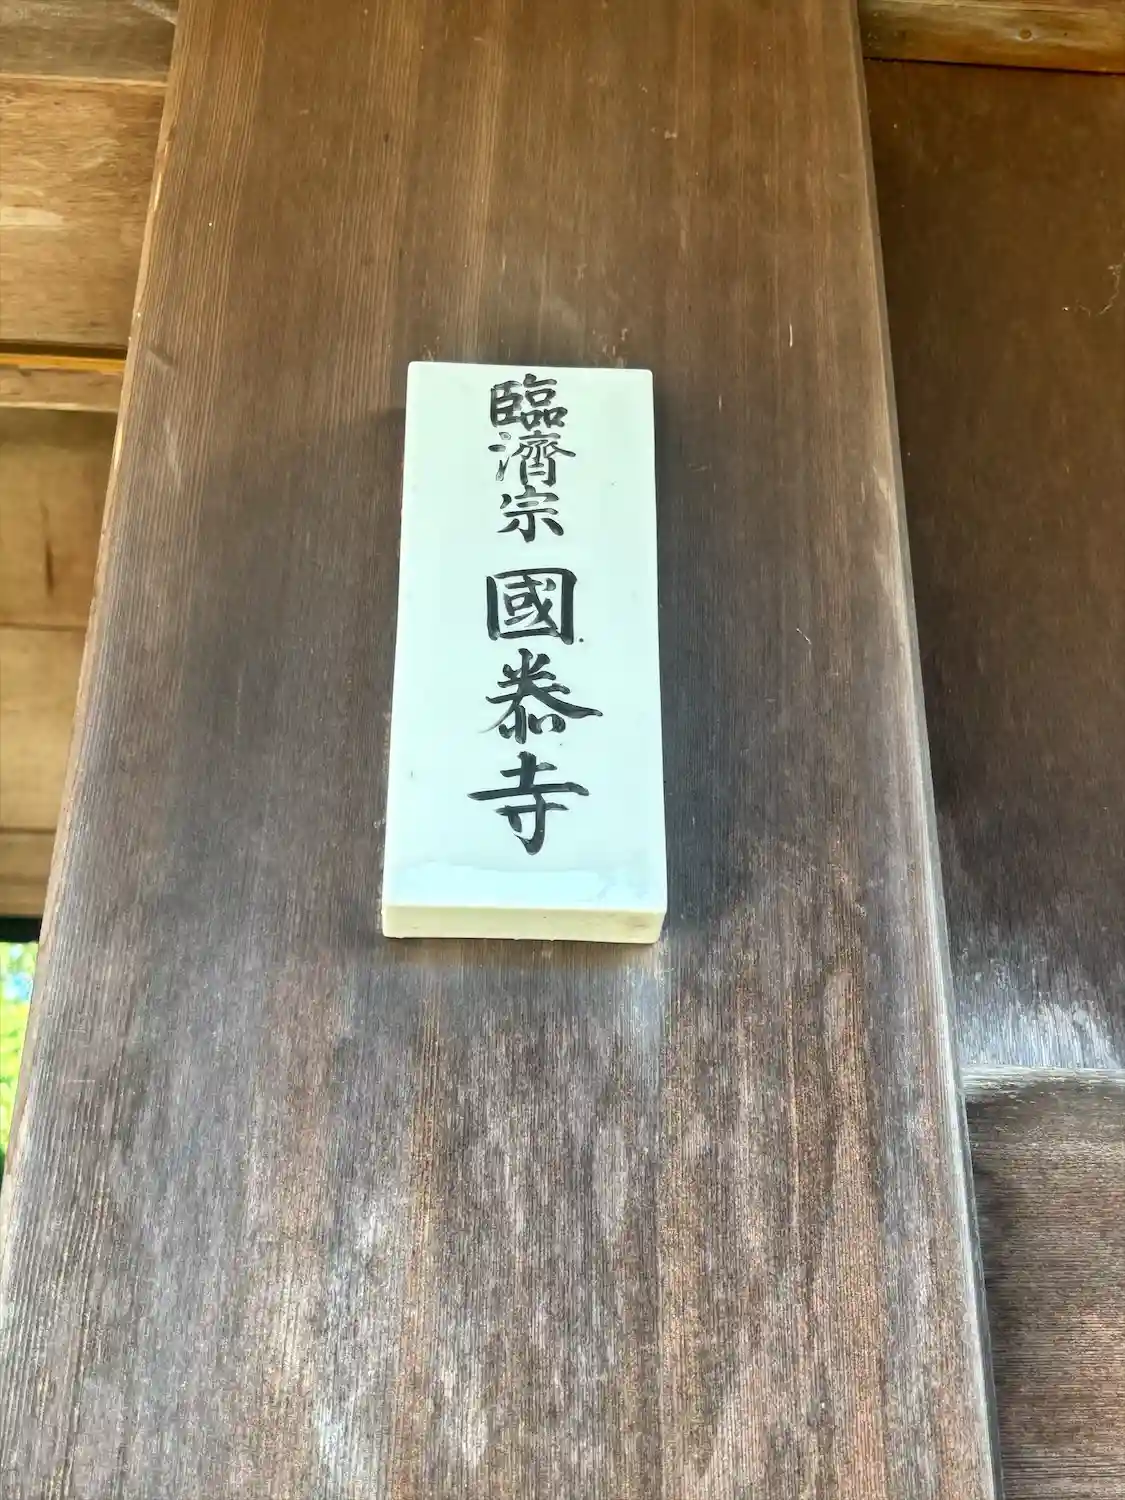 臨濟宗 國泰寺